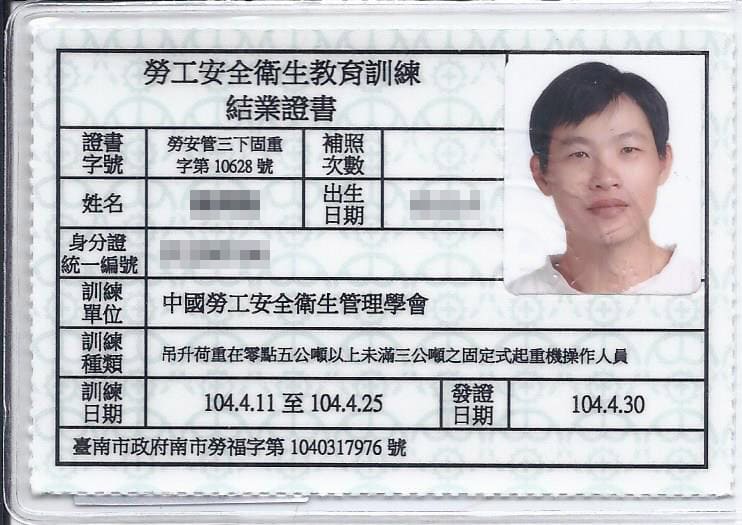 勞工安全衛生教育訓練
結業證書
證書字號 勞安管三下固重字第 10628 號 補照次數
姓名 出生日期
身分證統一編號
訓練單位 中國勞工安全衛生管理學會
訓練種類 吊升荷重在零點五公噸以上未滿三公噸之固定式起重機操作人員
訓練日期 104.4.11 至 104.4.25 發證日期 104.4.30
臺南市政府南市勞福字第 1040317976 號